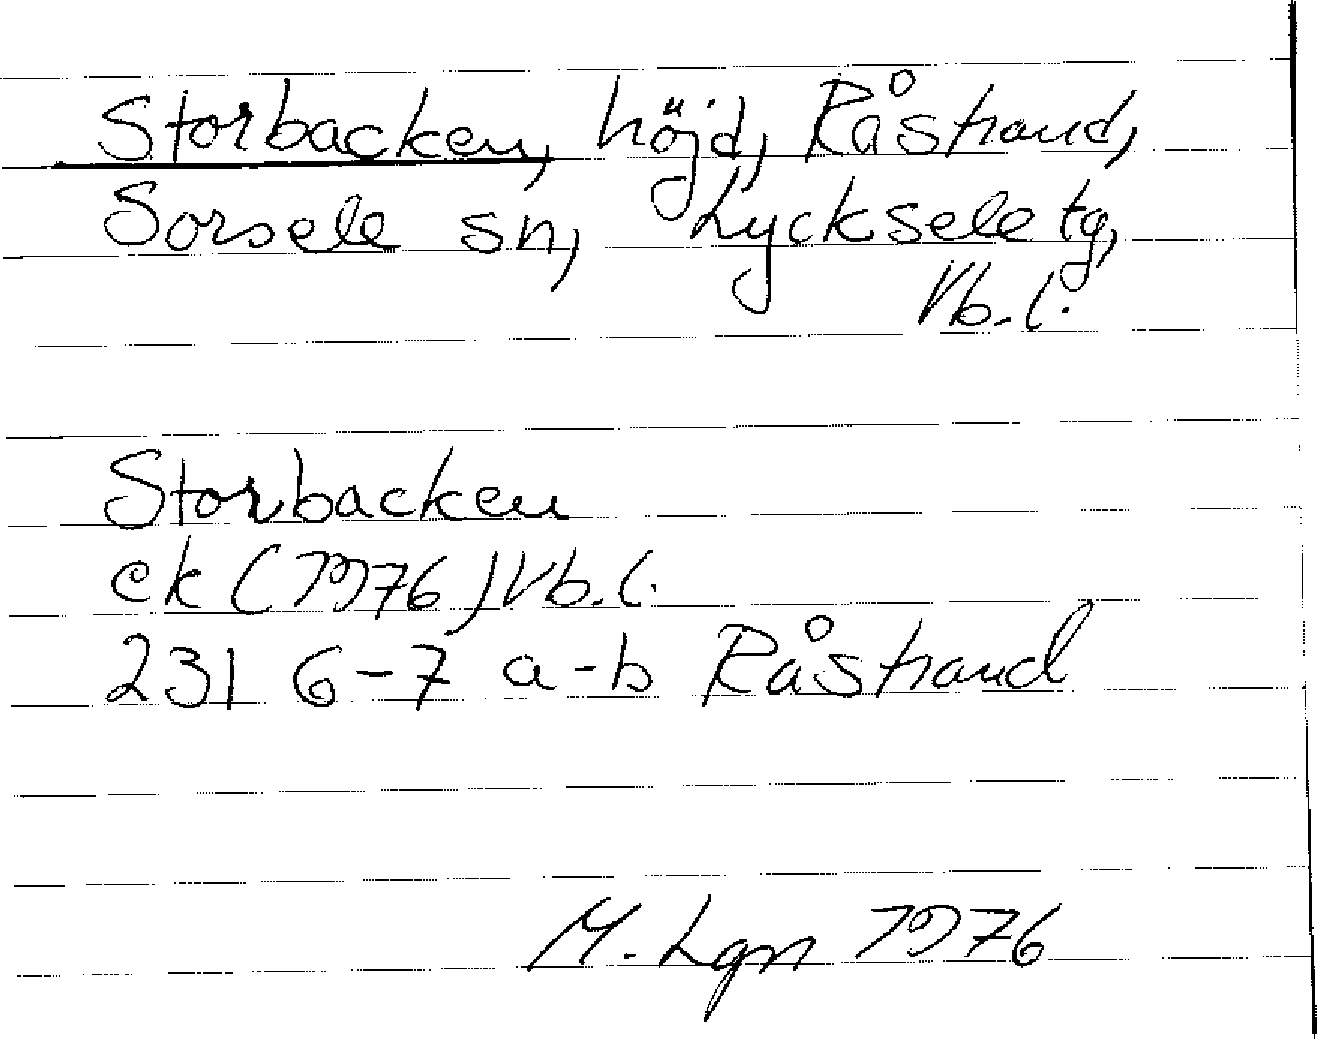 Storbacken, höjd, Råstrand,
Sorsele sn, Lycksele tg,
Vb.l.
Storbacken
ek (1976) Vb.l.
231 6-7 a-b Råstrand
M. Lgn 1976